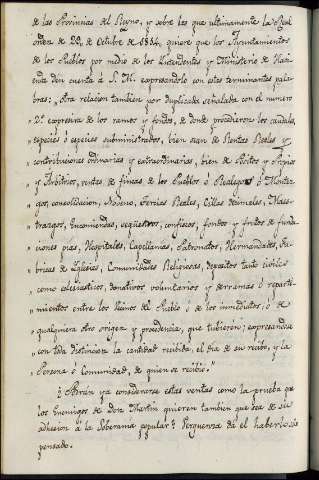 de las Provincias del Reyno, y sobre las que ultimamente la Real
orden de 20, de Octubre de 1814, quiere que los Ayuntamientos
de los Pueblos por medio de los Yntendentes y Ministerio de Haci
enda den cuenta á S. M. expresandolo con estas terminantes pala
bras: „ Otra relacion tambien por duplicado señalada con el numero
„ 2º expresiva de los ramos y fondos, de donde procedieron los caudales,
„ especies ó especies subministrados, bien sean de Rentas Reales y
„ contribuciones ordinarias y extraordinarias, bien de Positos y Propios
„ y Arbitrios, ventas de fincas de los Pueblos ó Realengos ó Montaz
„ gos, consolidacion, Noveno, Tercias Reales, Cillas decimales, Maes
„ trazgos, Encomiendas, seqüestros, confiscos, fondos y frutos de funda
„ ciones pias, Hospitales, Capellanias, Patronatos, Hermandades, Fa
„ bricas de Yglesias, Comunidades Religiosas, depositos tanto civiles
„ como eclesiasticos, donativos voluntarios y derramas ó reparti
„ mientos entre los Vecinos del Pueblo ó de los inmediatos, ó de
„ qualquiera otro origen y procedencia, que tubieren; expresandose
„ con toda distincion la cantidad recibida, el dia de su recibo, y la
„ Persona ó Comunidad, de quien se recibió."
¿Podrán ya considerarse estas ventas como la prueba que
los Enemigos de Don Martin quieren tambien que sea de su
adhesion á la Soberania popular? Verguenza dá el haberlo
pensado.